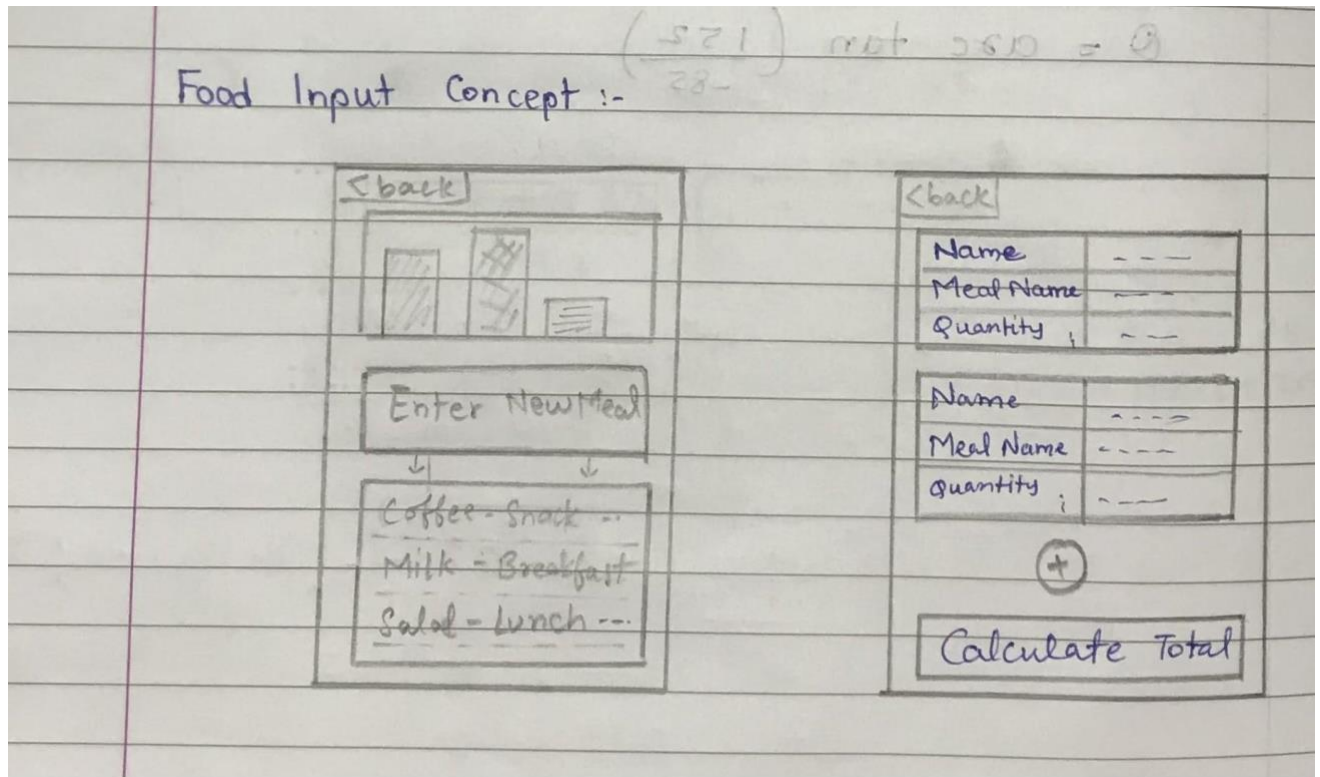 Food Input Concept :-
<back
Enter New Meal
Coffee - Snack ...
Milk - Breakfast
Salad - Lunch ---
<back
Name ---
Meal Name ---
Quantity ; ---
Name ----
Meal Name ----
Quantity ; ---
+
Calculate Total